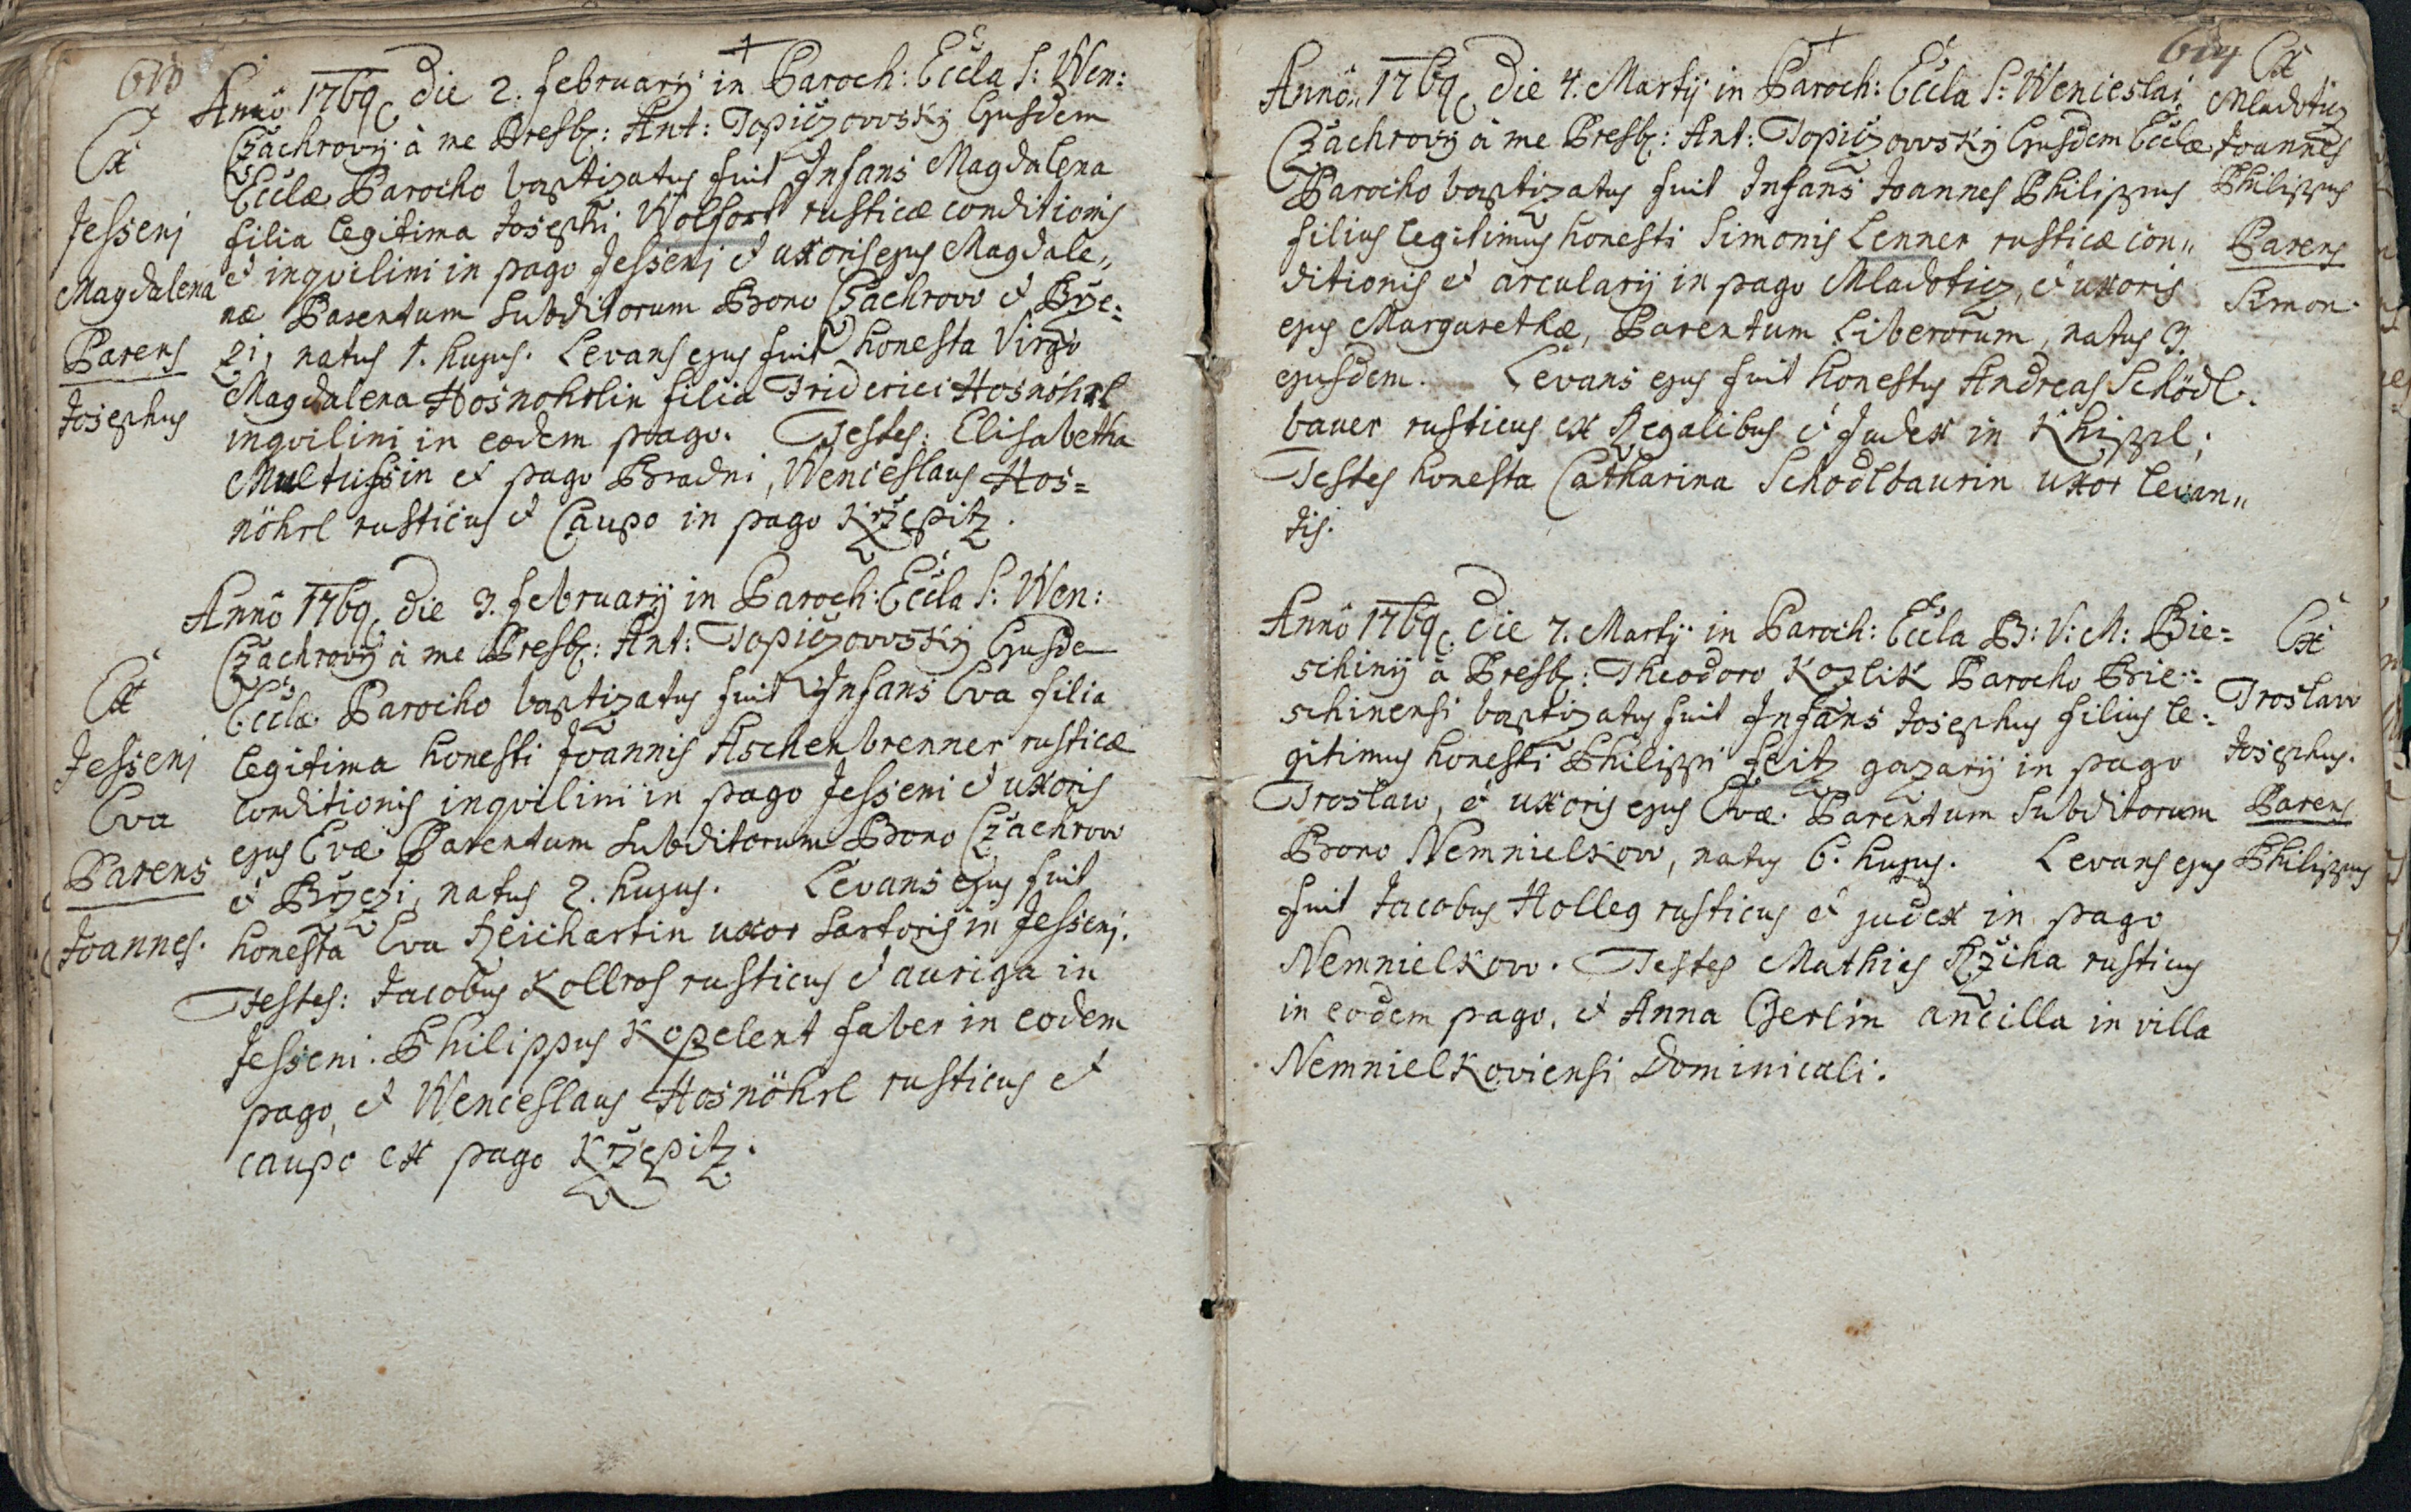 Ex
Jesseni
Magdalena
Parens
Josephus
Anno 1769 die 2. februarij in Paroch: Eccla S: Wen:
Czachrovij à me Presb: Ant: Topiczovvskÿ Ejusdem
Ecclæ Parocho baptizatus fuit Infans Magdalena
filia legitima Josephi Wolfort rusticæ conditionis
et inqvilini in pago Jesseni et uxoris ejus Magdale„
næ Parentum Subditorum Bono Czachrow et Brze=
zi, natus 1. hujus. Levans ejus fuit honesta Virgo
Magdalena Hosnohrlin filia Friderici Hosnöhrl
inqvilini in eodem pago. Testes: Elisabetha
Multussin et pago Bradni, Wenceslaus Hos=
nöhrl rusticus et Caupo in pago Krzepitz.
Ex
Jesseni
Eva
Parens
Joannes.
Annô 1769 die 3. februarij in Paroch: Eccla S: Wen:
Czachrovij à me Presb: Ant: Topiczovvskÿ Ejusde
Ecclæ Parocho baptizatus fuit Infans Eva filia
legitima honesti Joannis Aschenbrenner rusticæ
conditionis inqvilini in pago Jesseni et uxoris
ejus Evæ Parentum Subditorum Bono Czachrow
et Brzezi, natus 2. hujus. Levans ejus fuit
honesta Eva Reichartin uxor Sartoris in Jesseni.
Testes: Jacobus Kollros rusticus et auriga in
Jesseni. Philippus Kopelent faber in eodem
pago, et Wenceslaus Hosnöhrl rusticus et
caupo ex pago Krzepitz.
Annô 1769 die 4. Martij in Paroch: Eccla S: Wenceslai
Czachrovij à me Presb: Ant: Topiczovvskÿ Ejusdem Ecclæ
Parocho baptizatus fuit Infans Joannes Philippus
filius legitimus honesti Simonis Lenner rusticæ con„
ditionis et arcularij in pago Mladoticz, et uxoris
ejus Margarethæ, Parentum Liberorum, natus 3.
ejusdem. Levans ejus fuit honestus Andreas Schödl.
bauer rusticus ex Regalibus et Judex in Khippl;
Testes honesta Catharina Schödlbaurin uxor levan„
tis.
Ex
Mladoticz
Joannes
Philippus
Parens
Simon.
Annô 1769 die 7. Martij in Paroch: Eccla B: V: M: Bie=
schinij à Presb: Theodoro Kozlik Parocho Bie=
schinensi baptizatus fuit Infans Josephus filius le=
gitimus honesti Philippi Feitz gazarij in pago
Troslaw, et uxoris ejus Evæ. Parentum Subditorum
Bono Nemnielkow, natus 6. hujus. Levans ejus
fuit Jacobus Holleg rusticus et judex in pago
Nemnielkow. Testes Mathias Rziha rusticus
in eodem pago, et Anna Gerlin ancilla in villa
Nemnielkoviensi Dominicali.
Ex
Troslaw
Josephus.
Parens
Philippus